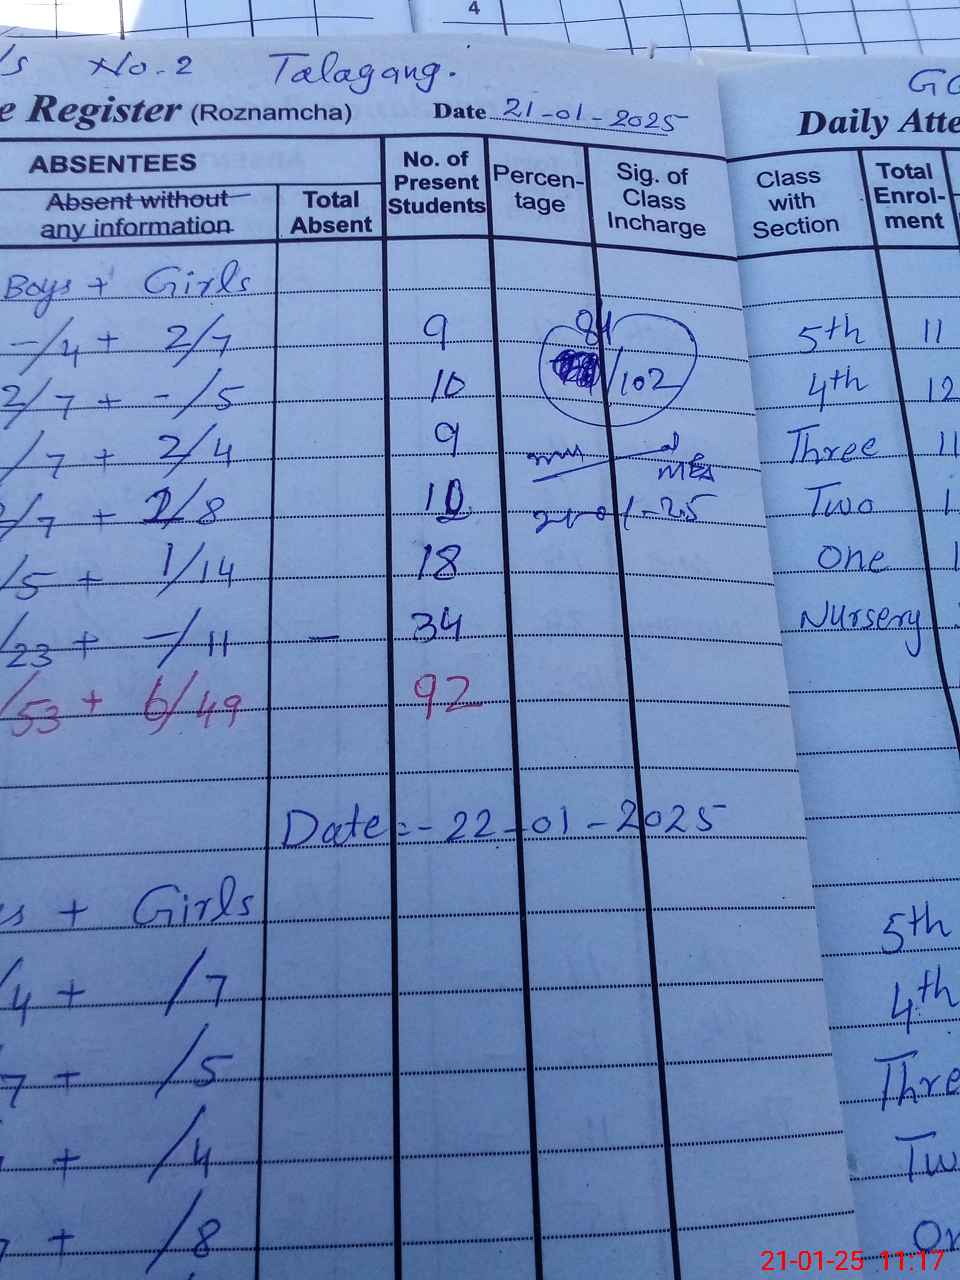 4
No. 2 Talagang.
e Register (Roznamcha) Date 21-01-2025
ABSENTEES
Absent without any information
Total Absent
No. of Present Students
Percen-tage
Sig. of Class Incharge
Boys + Girls
-/4 + 2/7 9 91
2/7 + -/5 10 /102
/7 + 2/4 9
MEA
/7 + 2/8 12
/5 + 1/14 18
/23 + -/11 - 34
/53 + 6/49 92
Date:- 22-01-2025
+ Girls
/4 + /7
7 + /5
+ /4
+ /8
Daily Atte
Class with Section
Total Enrol-ment
5th 11
4th 12
Three 11
Two 1
One 1
Nursery
5th
4th
Thre
Tw
On
21-01-25 11:17